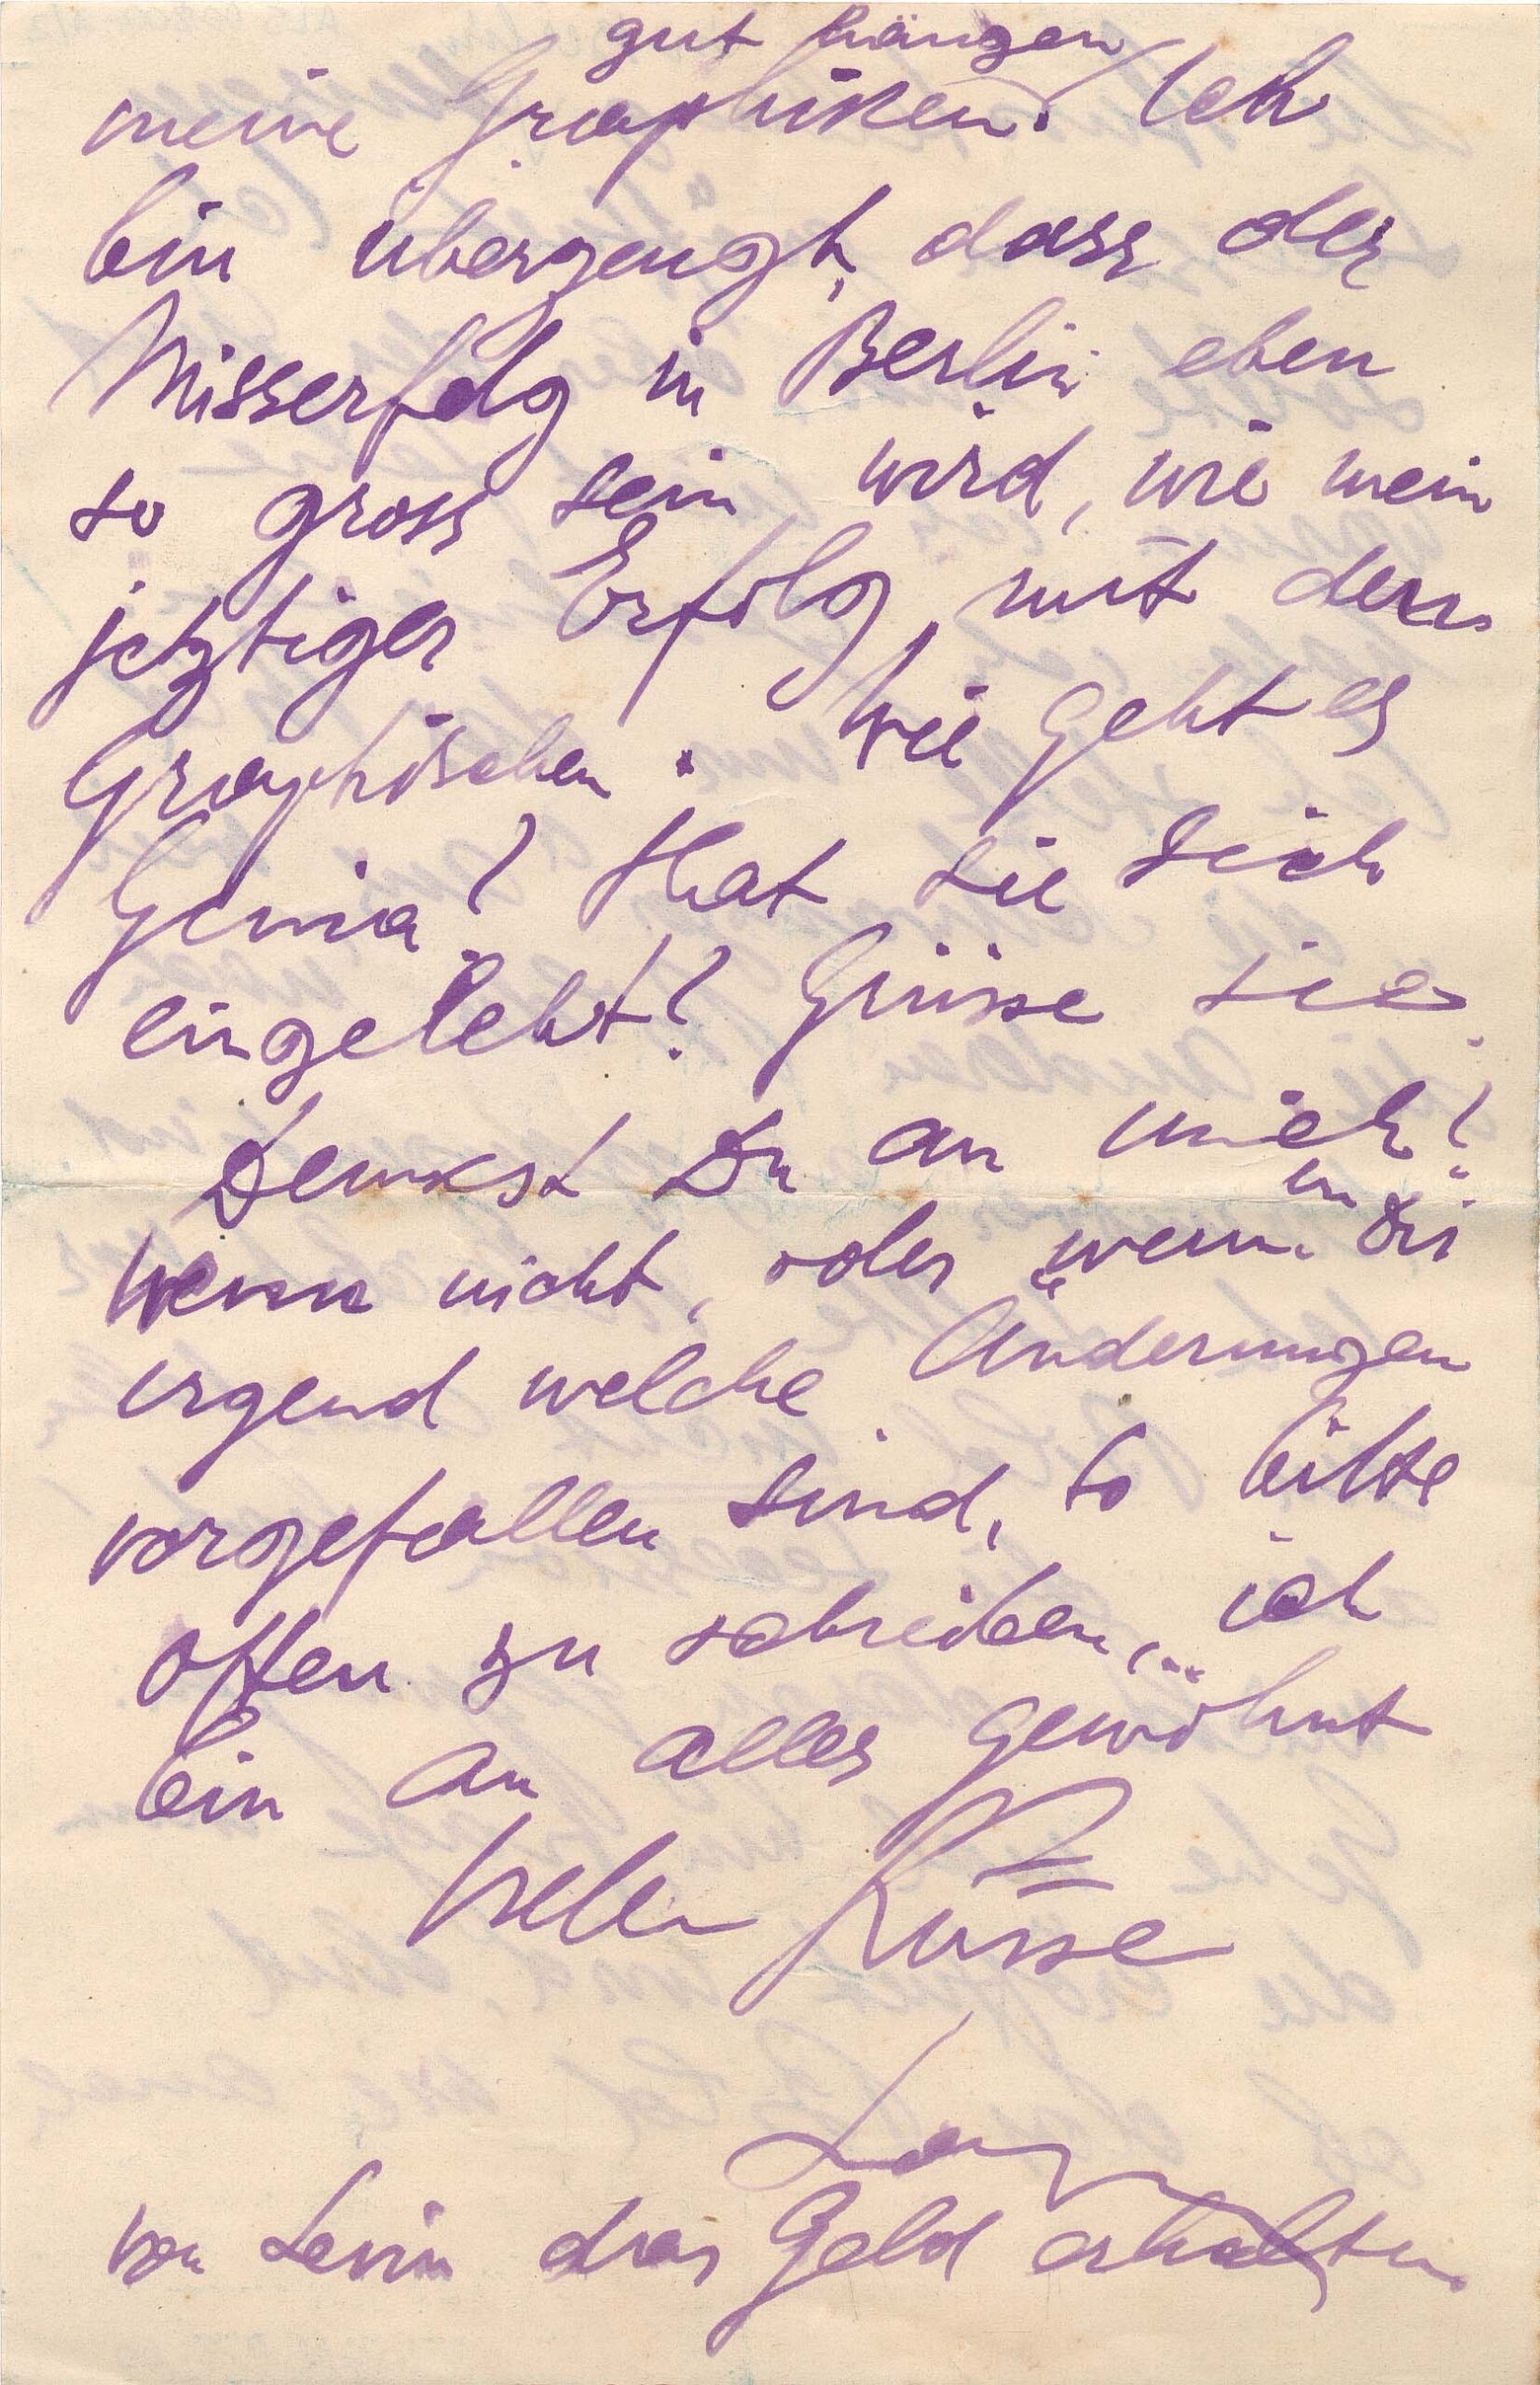 gut hängen
meine Graphiken. Ich
bin überzeugt, dass der
Misserfolg in Berlin eben
so gross sein wird, wie mein
jetziger Erfolg, mit dem
Graphischen. Wie geht es
Genia? Hat sie sich
eingelebt? Grüsse sie.
Denkst Du an mich?
Wenn nicht, oder „wenn in Dir“
irgend welche Änderungen
vorgefallen sind, so bitte
offen zu schreiben, ich
bin an alles gewöhnt
Vielen Küsse
von Levin das Geld erhalten.